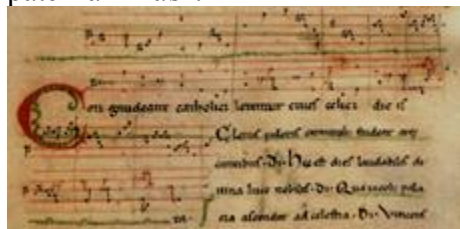 Congaudeant catholici letentur cives celici die is
Clerus pulcris studeat
cantibus. Di. Hec est dies laudabilis di
uina luce nobilis. Di. Qua iacobus pala
cia ascendit ad celestia. Di. Vincens